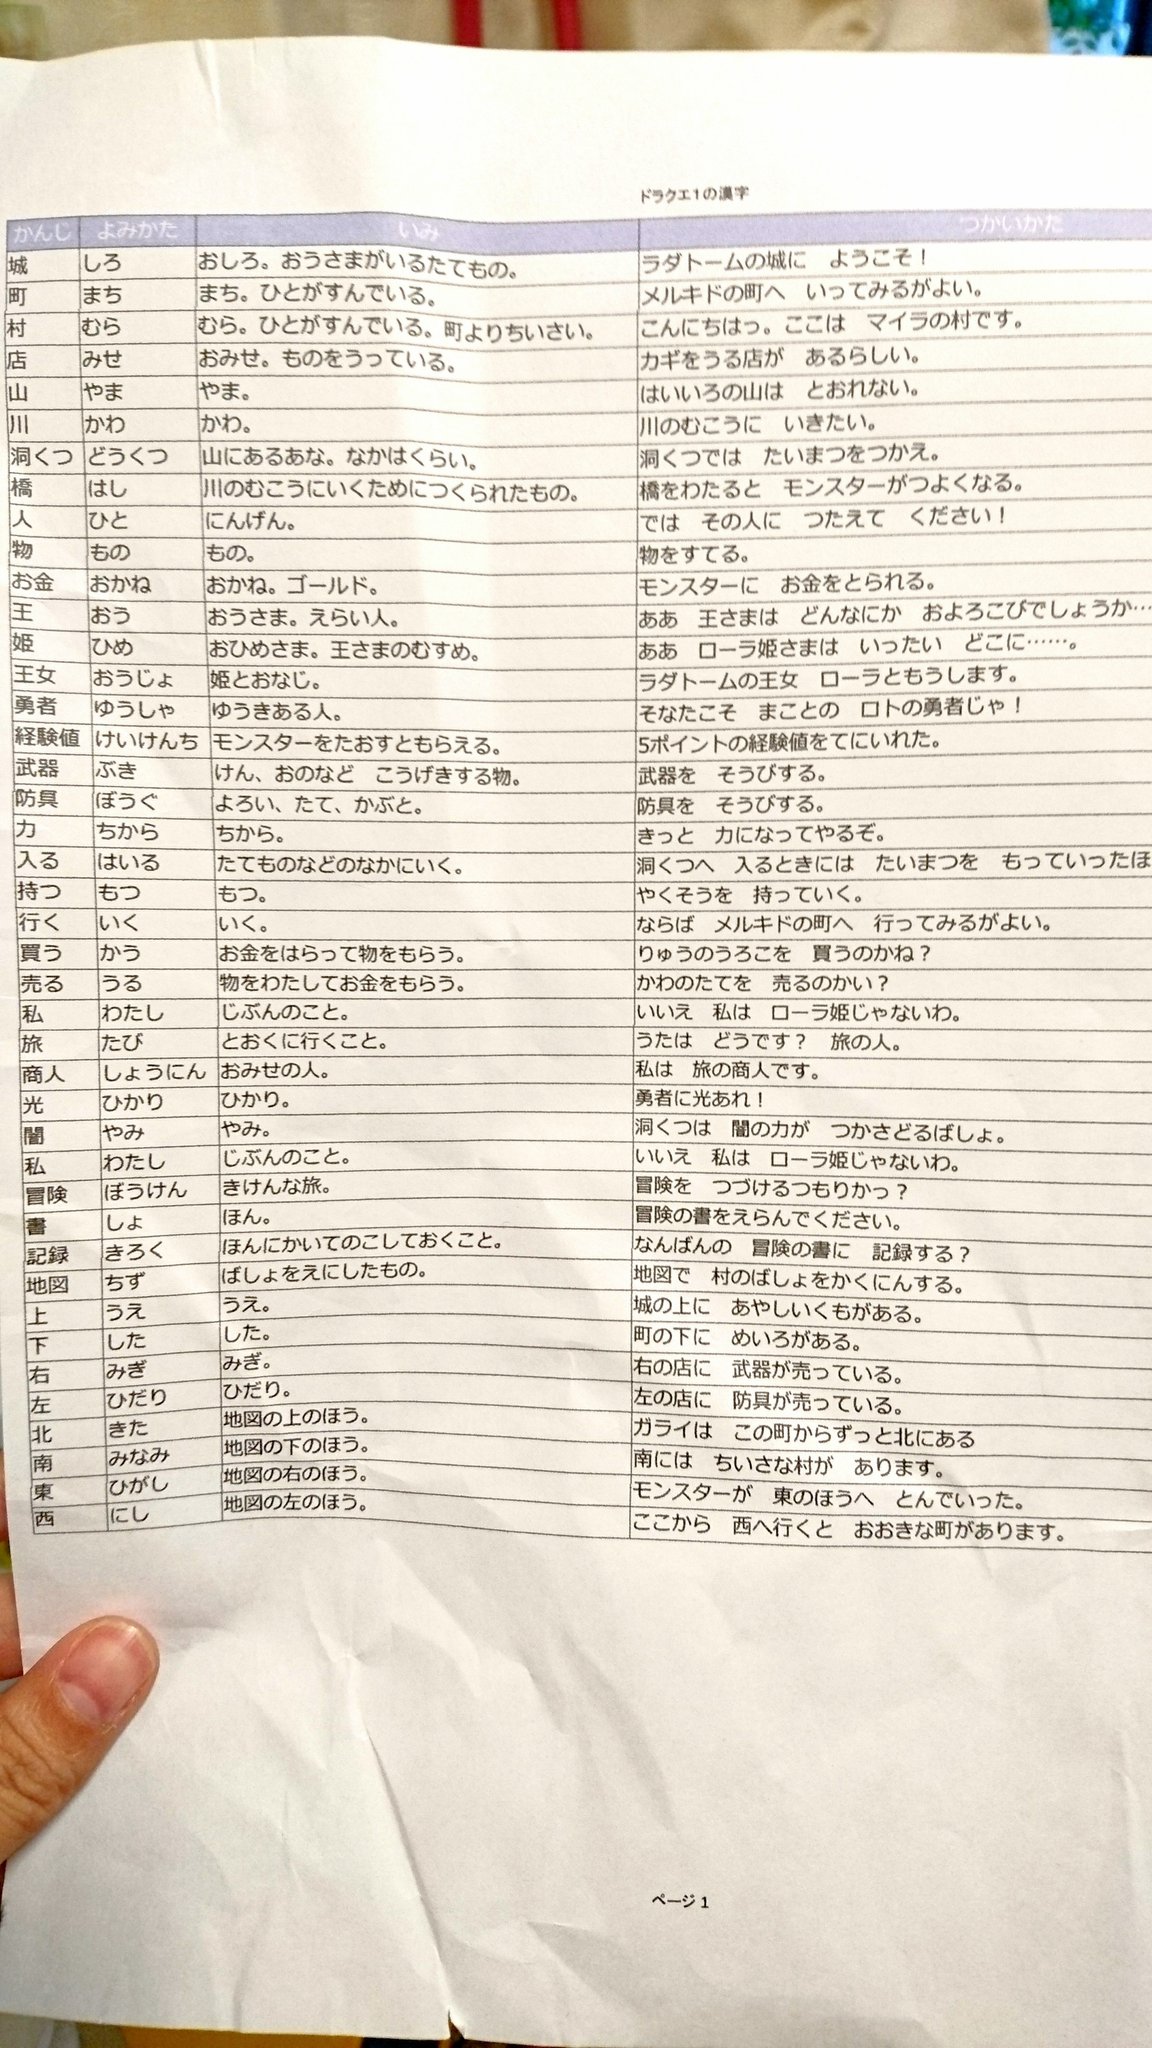 ドラクエ1の漢字
かんじ よみかた いみ つかいかた
城 しろ おしろ。おうさまがいるたてもの。 ラダトームの城に　ようこそ！
町 まち まち。ひとがすんでいる。 メルキドの町へ　いってみるがよい。
村 むら むら。ひとがすんでいる。町よりちいさい。 こんにちはっ。ここは　マイラの村です。
店 みせ おみせ。ものをうっている。 カギをうる店が　あるらしい。
山 やま やま。 はいいろの山は　とおれない。
川 かわ かわ。 川のむこうに　いきたい。
洞くつ どうくつ 山にあるあな。なかはくらい。 洞くつでは　たいまつをつかえ。
橋 はし 川のむこうにいくためにつくられたもの。 橋をわたると　モンスターがつよくなる。
人 ひと にんげん。 では　その人に　つたえて　ください！
物 もの もの。 物をすてる。
お金 おかね おかね。ゴールド。 モンスターに　お金をとられる。
王 おう おうさま。えらい人。 ああ　王さまは　どんなにか　およろこびでしょうか…
姫 ひめ おひめさま。王さまのむすめ。 ああ　ローラ姫さまは　いったい　どこに……。
王女 おうじょ 姫とおなじ。 ラダトームの王女　ローラともうします。
勇者 ゆうしゃ ゆうきある人。 そなたこそ　まことの　ロトの勇者じゃ！
経験値 けいけんち モンスターをたおすともらえる。 5ポイントの経験値をてにいれた。
武器 ぶき けん、おのなど　こうげきする物。 武器を　そうびする。
防具 ぼうぐ よろい、たて、かぶと。 防具を　そうびする。
力 ちから ちから。 きっと　力になってやるぞ。
入る はいる たてものなどのなかにいく。 洞くつへ　入るときには　たいまつを　もっていったほ
持つ もつ もつ。 やくそうを　持っていく。
行く いく いく。 ならば　メルキドの町へ　行ってみるがよい。
買う かう お金をはらって物をもらう。 りゅうのうろこを　買うのかね？
売る うる 物をわたしてお金をもらう。 かわのたてを　売るのかい？
私 わたし じぶんのこと。 いいえ　私は　ローラ姫じゃないわ。
旅 たび とおくに行くこと。 うたは　どうです？　旅の人。
商人 しょうにん おみせの人。 私は　旅の商人です。
光 ひかり ひかり。 勇者に光あれ！
闇 やみ やみ。 洞くつは　闇の力が　つかさどるばしょ。
私 わたし じぶんのこと。 いいえ　私は　ローラ姫じゃないわ。
冒険 ぼうけん きけんな旅。 冒険を　つづけるつもりかっ？
書 しょ ほん。 冒険の書をえらんでください。
記録 きろく ほんにかいてのこしておくこと。 なんばんの　冒険の書に　記録する？
地図 ちず ばしょをえにしたもの。 地図で　村のばしょをかくにんする。
上 うえ うえ。 城の上に　あやしいくもがある。
下 した した。 町の下に　めいろがある。
右 みぎ みぎ。 右の店に　武器が売っている。
左 ひだり ひだり。 左の店に　防具が売っている。
北 きた 地図の上のほう。 ガライは　この町からずっと北にある
南 みなみ 地図の下のほう。 南には　ちいさな村が　あります。
東 ひがし 地図の右のほう。 モンスターが　東のほうへ　とんでいった。
西 にし 地図の左のほう。 ここから　西へ行くと　おおきな町があります。
ページ 1